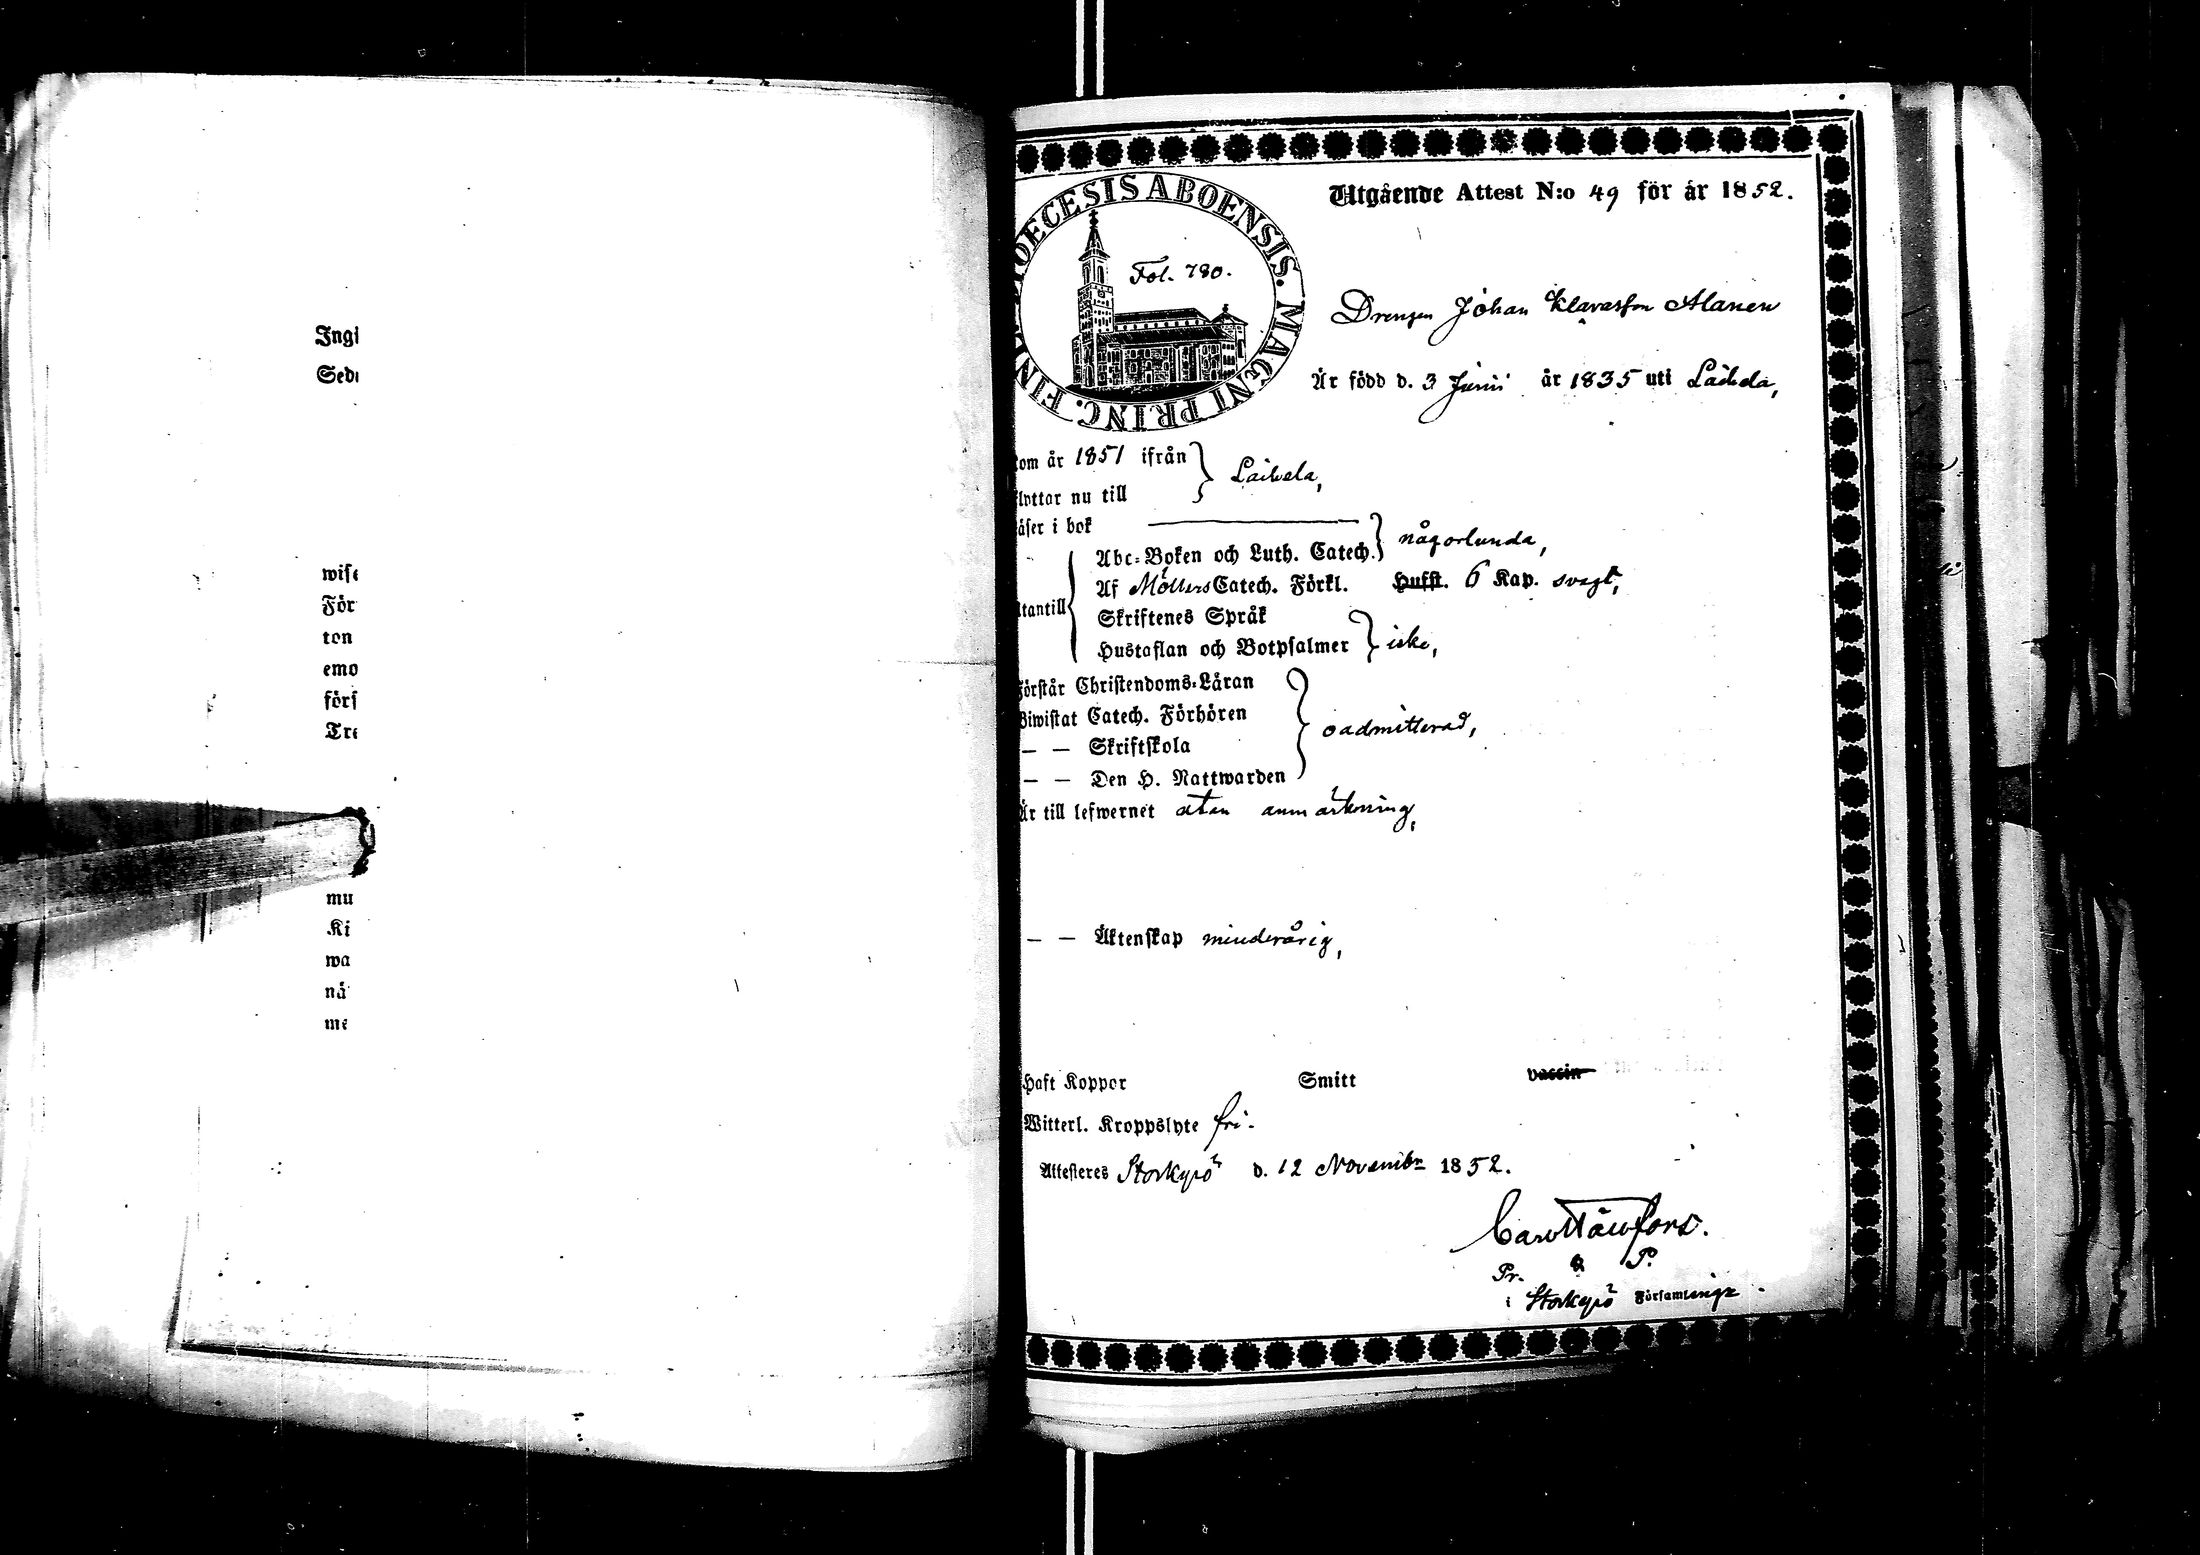 Ingi
Sedi
wise
För
ton
emo
förs
Tre
mu
Ki
wa
nå
me
DIOECESIS ABOENSIS. MAGNI PRINC. FINL.
Fol. 780.
Utgående Attest N:o 49 för år 1852.
Drengen Johan Alanen
Är född d. 3 Junii år 1835 uti Laihela,
kom år 1851 ifrån
flyttar nu till
Laihela,
läser i bok
Abc-Boken och Luth. Catech.
någorlunda,
Utantill
Af Möllers Catech. Förkl. Husst. 6 Kap. svagt,
Skriftenes Språk
Hustaflan och Botpsalmer
icke,
Förstår Christendoms-Läran
Biwistat Catech. Förhören
— — Skriftskola
— — Den H. Nattwarden
oadmitterad,
Är till lefwernet utan anmärkning,
— — Äktenskap minderårig,
Haft Koppor Smitt vaccin
Witterl. Kroppslyte fri.
Attesteras Storkyrö d. 12 November 1852.
Pr. & P.
i Storkyrö Församlings